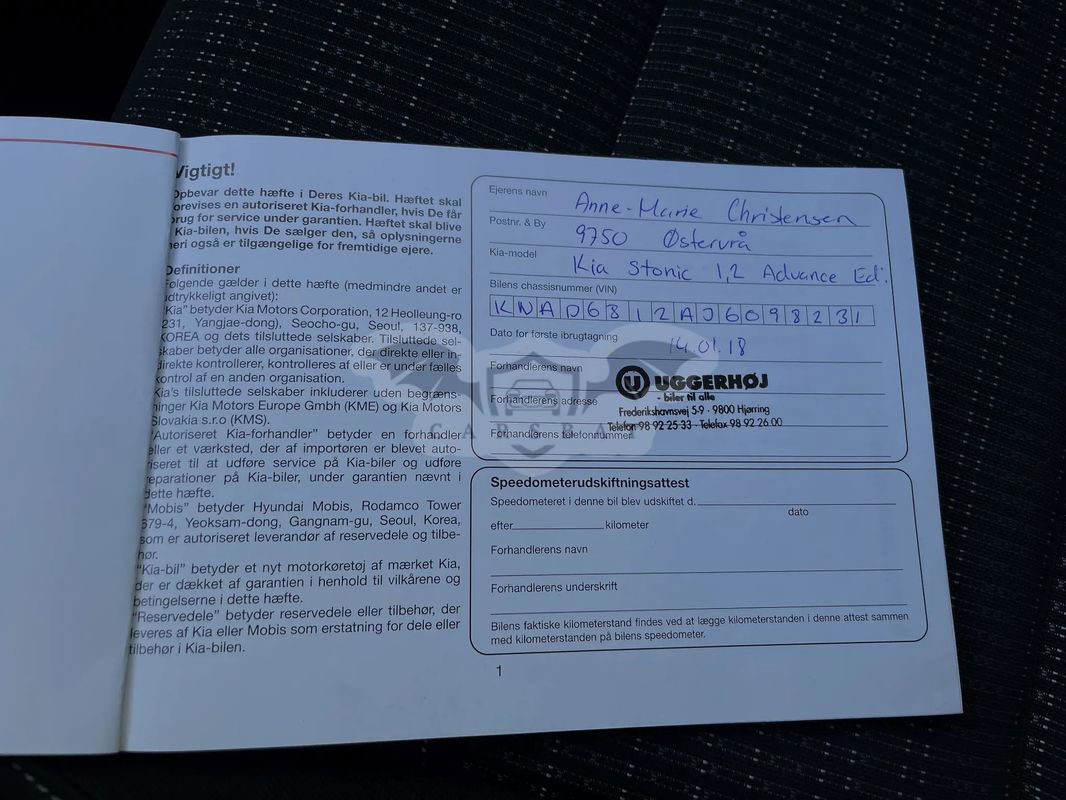 Vigtigt!
Opbevar dette hæfte i Deres Kia-bil. Hæftet skal
forevises en autoriseret Kia-forhandler, hvis De får
brug for service under garantien. Hæftet skal blive
i Kia-bilen, hvis De sælger den, så oplysningerne
heri også er tilgængelige for fremtidige ejere.
Definitioner
Følgende gælder i dette hæfte (medmindre andet er
udtrykkeligt angivet):
"Kia" betyder Kia Motors Corporation, 12 Heolleung-ro
(231, Yangjae-dong), Seocho-gu, Seoul, 137-938,
KOREA og dets tilsluttede selskaber. Tilsluttede sel-
skaber betyder alle organisationer, der direkte eller in-
direkte kontrollerer, kontrolleres af eller er under fælles
kontrol af en anden organisation.
Kia's tilsluttede selskaber inkluderer uden begræns-
ninger Kia Motors Europe Gmbh (KME) og Kia Motors
Slovakia s.r.o (KMS).
"Autoriseret Kia-forhandler" betyder en forhandler
eller et værksted, der af importøren er blevet auto-
riseret til at udføre service på Kia-biler og udføre
reparationer på Kia-biler, under garantien nævnt i
dette hæfte.
"Mobis" betyder Hyundai Mobis, Rodamco Tower
679-4, Yeoksam-dong, Gangnam-gu, Seoul, Korea,
som er autoriseret leverandør af reservedele og tilbe-
hør.
"Kia-bil" betyder et nyt motorkøretøj af mærket Kia,
der er dækket af garantien i henhold til vilkårene og
betingelserne i dette hæfte.
"Reservedele" betyder reservedele eller tilbehør, der
leveres af Kia eller Mobis som erstatning for dele eller
tilbehør i Kia-bilen.
Ejerens navn Anne-Marie Christensen
Postnr. & By 9750 Østervrå
Kia-model Kia Stonic 1,2 Advance Ed.
Bilens chassisnummer (VIN)
KNAD6812AJ6098231
Dato for første ibrugtagning 14.01.18
Forhandlerens navn UGGERHØJ
- biler til alle
Forhandlerens adresse Frederikshavnsvej 5-9 · 9800 Hjørring
Telefon 98 92 25 33 · Telefax 98 92 26 00
Forhandlerens telefonnummer
CARSBAT
Speedometerudskiftningsattest
Speedometeret i denne bil blev udskiftet d.
dato
efter kilometer
Forhandlerens navn
Forhandlerens underskrift
Bilens faktiske kilometerstand findes ved at lægge kilometerstanden i denne attest sammen
med kilometerstanden på bilens speedometer.
1